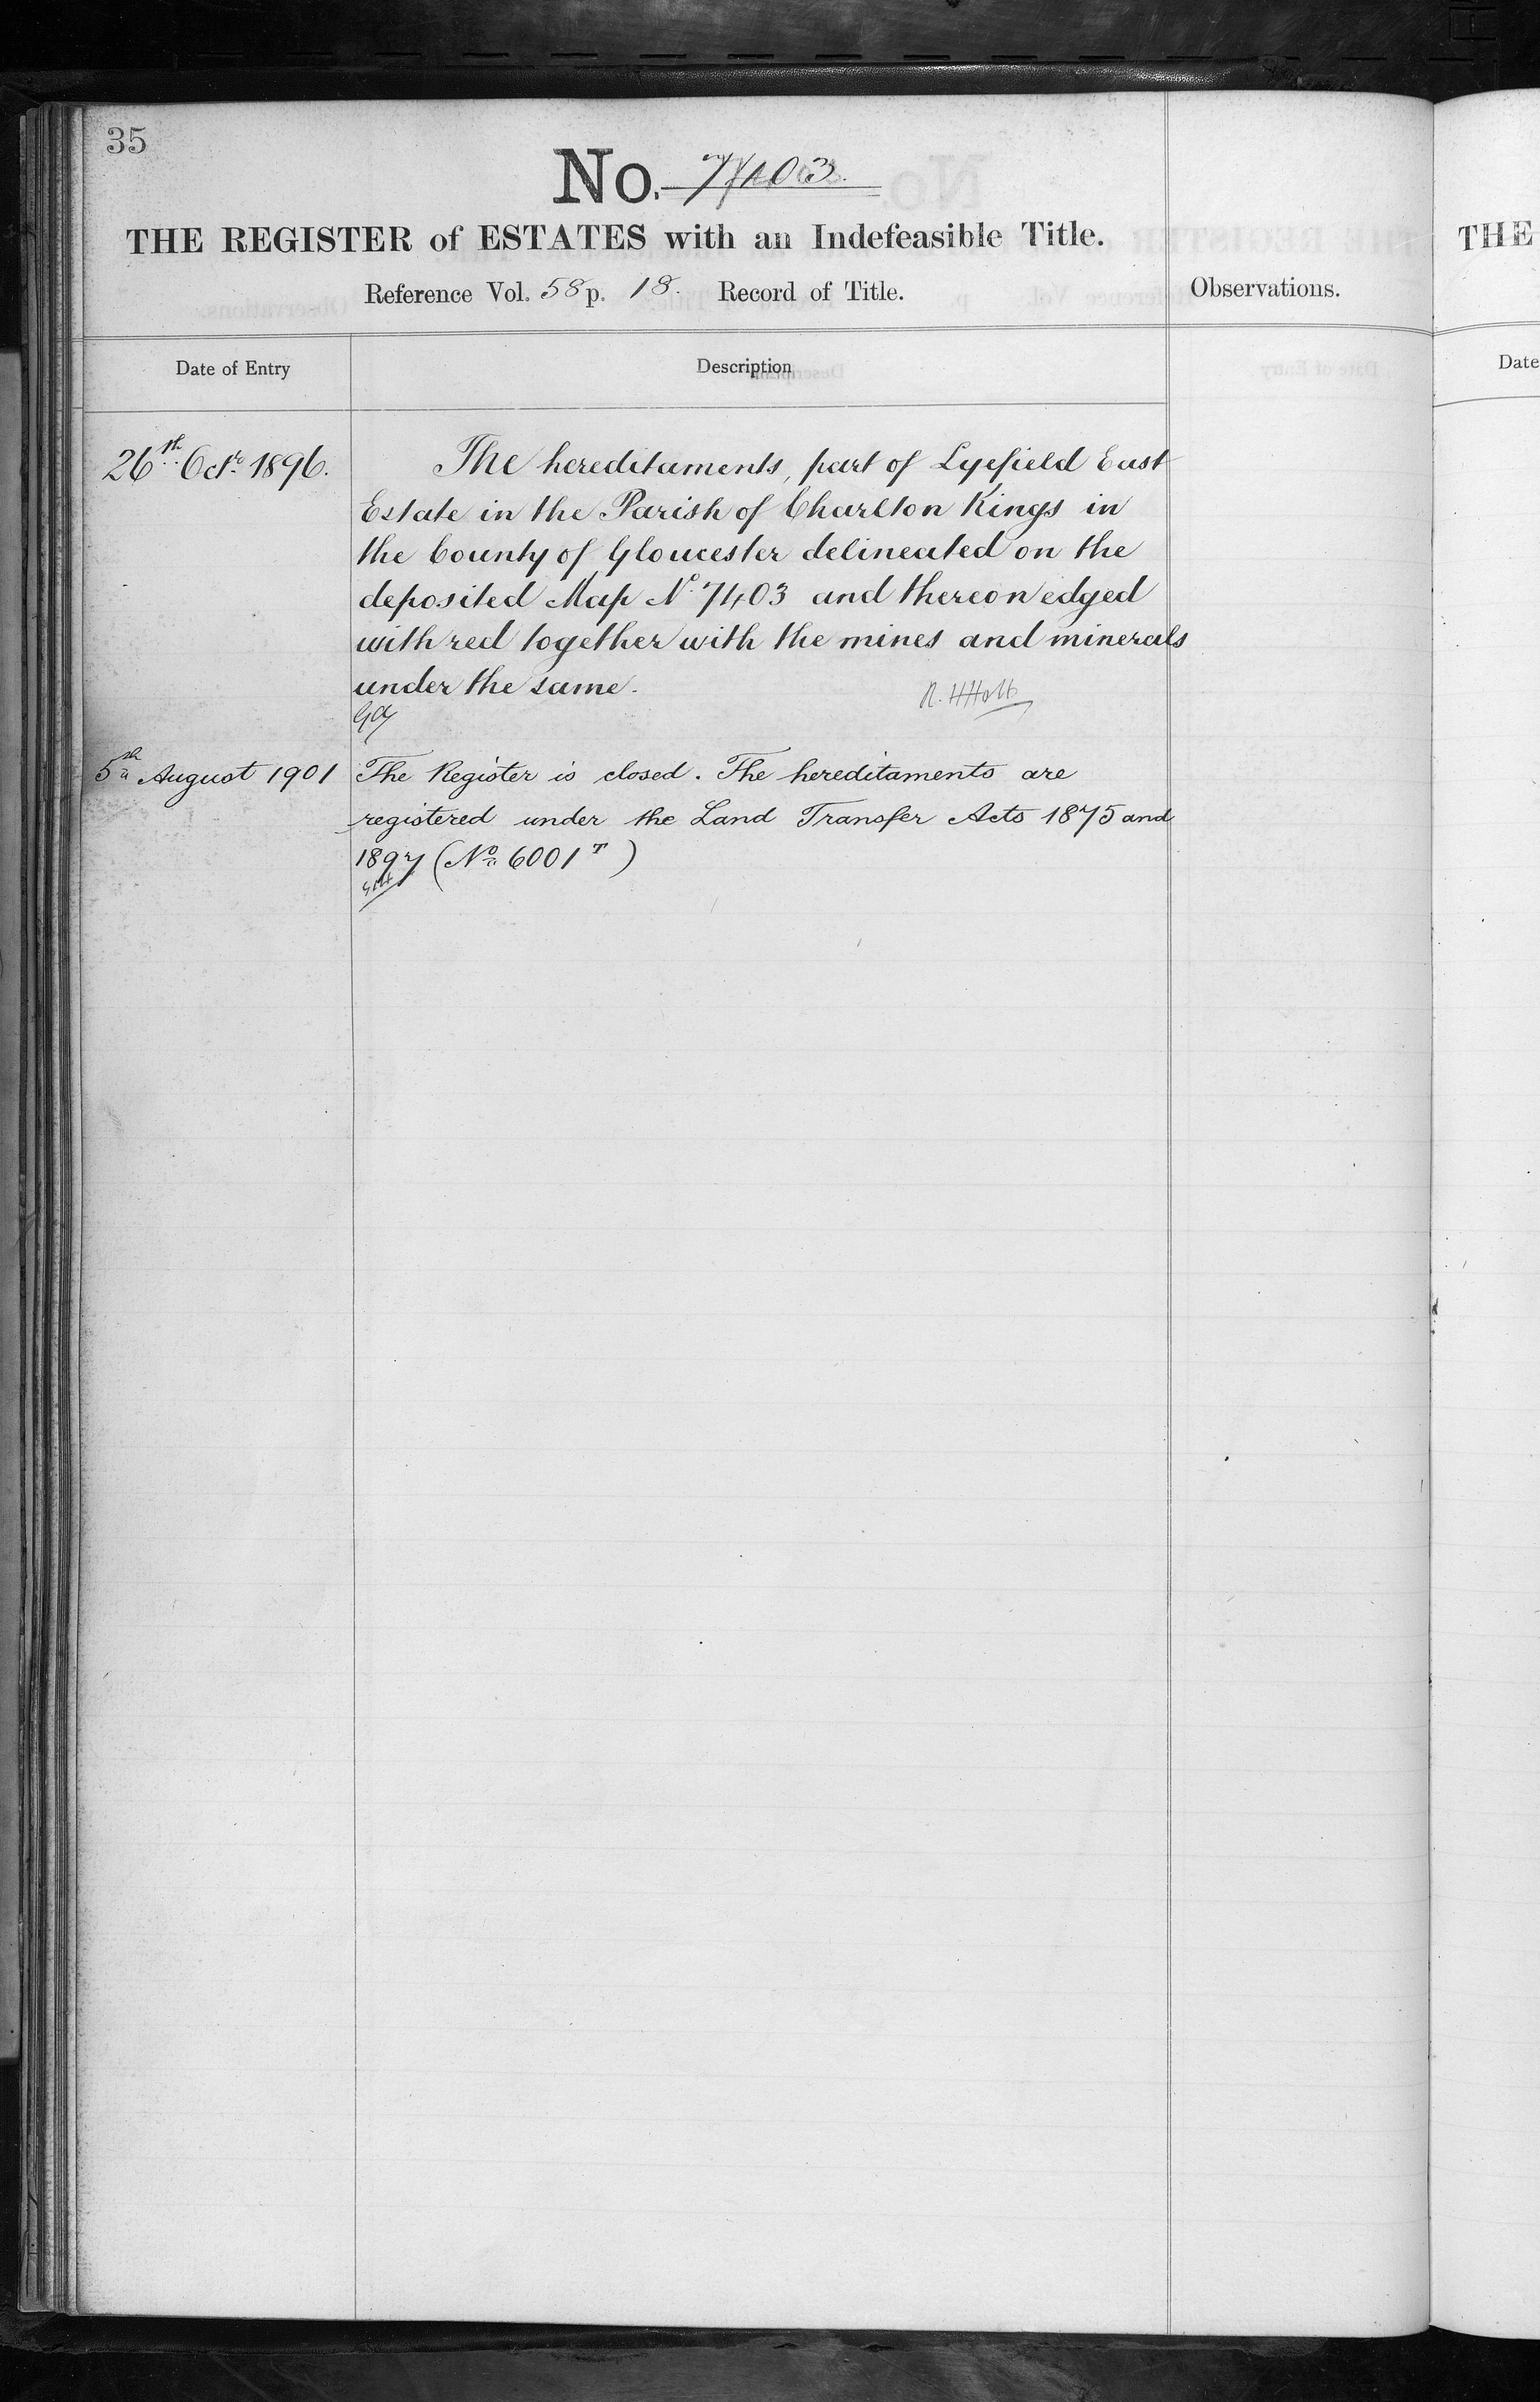 35
No. 7403.
THE REGISTER of ESTATES with an Indefeasible Title.
Reference Vol. 58 p. 18. Record of Title.
Observations.
Date of Entry
Description
26th Octr 1896.
The hereditaments, part of Lyefield East
Estate in the Parish of Charlton Kings in
the County of Gloucester delineated on the
deposited Map No. 7403 and thereon edged
with red together with the mines and minerals
under the same.
R. H Holt
5th August 1901
The Register is closed. The hereditaments are
registered under the Land Transfer Acts 1875 and
1897 (No. 6001 T)
THE
Date